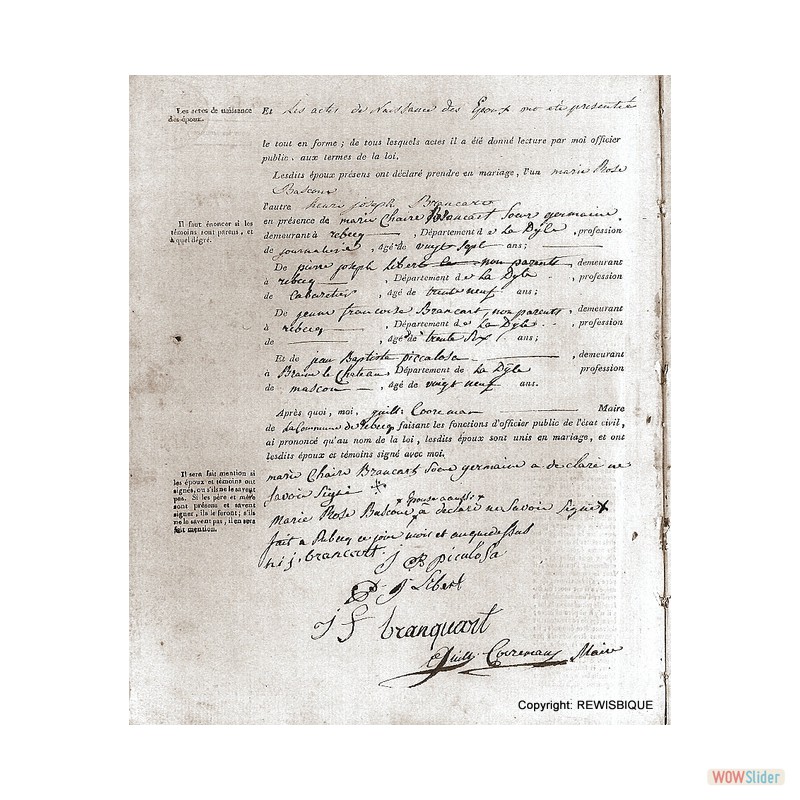 Les actes de naissance
des époux.
Et Les actes de Naissance des Epoux mo été presentée
le tout en forme ; de tous lesquels actes il a été donné lecture par moi officier
public, aux termes de la loi.
Lesdits époux présens ont déclaré prendre en mariage, l'un marie Rose
Bascour
l'autre henri joseph Brancart
Il faut énoncer si les
témoins sont parens, et
à quel dégré.
en présence de marie Chaire Brancart Sour germaine,
demeurant à rebecq , Département de La Dÿle , profession
de journaliere , âgé de vingt Sept ans ;
De piere joseph libert non parents demeurant
à rebecq , Département de La Dÿle profession
de Cabaretier , âgé de trente neuf ans ;
De jeune francoise Brancart, non parents, demeurant
à rebecq , Département de La Dÿle profession
de , âgé de trente Six ans ;
Et de jean Baptiste piccalosa , demeurant
à Braine le Chateau, Département de La Dÿle profession
de masson , âgé de vingt neuf ans.
Après quoi, moi, guill: Cooreman Maire
de La Commune de rebecq faisant les fonctions d'officier public de l'état civil,
ai prononcé qu'au nom de la loi, lesdits époux sont unis en mariage, et ont
lesdits époux et témoins signé avec moi.
Il sera fait mention si
les époux et témoins ont
signés, ou s'ils ne le savent
pas. Si les père et mère
sont présens et savent
signer, ils le feront ; s'ils
ne le savent pas, il en sera
fait mention.
marie Chaire Brancart Sour germaine a declaré ne
Savoir Signé
Marie Rose Bascour a declaré ne Savoir Signé X
fait a Rebecq ce jour mois et an que dessus
h: j: brancart
J B piculosa
P. J Libert
J F branquart
Guill: Cooreman Maire
Copyright: REWISBIQUE
WOWSlider